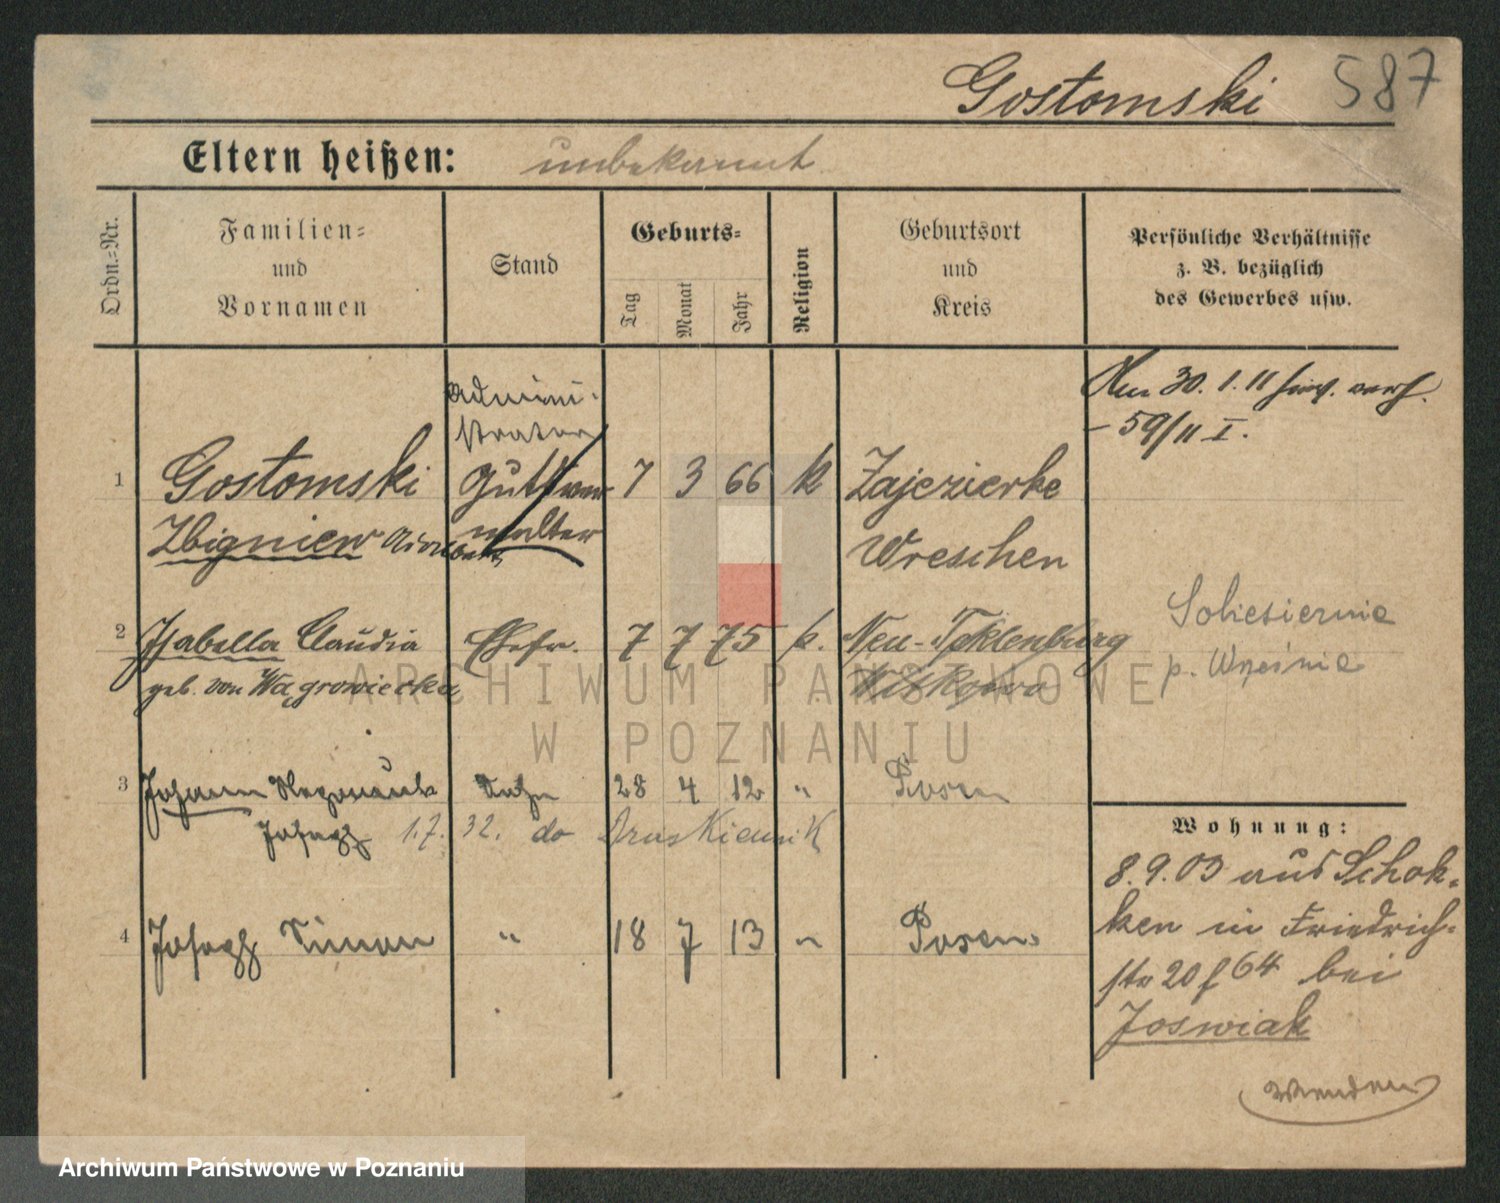 Gostomski 587
Eltern heißen: unbekannt
Ordn.-Nr.
Familien-
und
Vornamen
Stand
Geburts-
Tag
Monat
Jahr
Religion
Geburtsort
und
Kreis
Persönliche Verhältnisse
z. B. bezüglich
des Gewerbes usw.
Am 30. 1. 11
– 59/11 I.
Admini-
strator
1 Gostomski Gutsver- 7 3 66 k Zajezierke
Zbigniew Adalbert walter Wreschen
Sokiesiernie
p. Wrześnie
2 Isabella Claudia Ehefr. 7 7 75 k. Neu-Tecklenburg
geb. von Wagrowiecka Witkowo
3 Johann Sohn 28 4 12 " Posen
Joseph 1.7. 32. do Druskiennik
4 Joseph Simon " 18 7 13 " Posen
Wohnung:
8.9.03 aus Schok-
ken in Friedrich-
str 20 f 64 bei
Joswiak
Wenden
ARCHIWUM PAŃSTWOWE
W POZNANIU
Archiwum Państwowe w Poznaniu